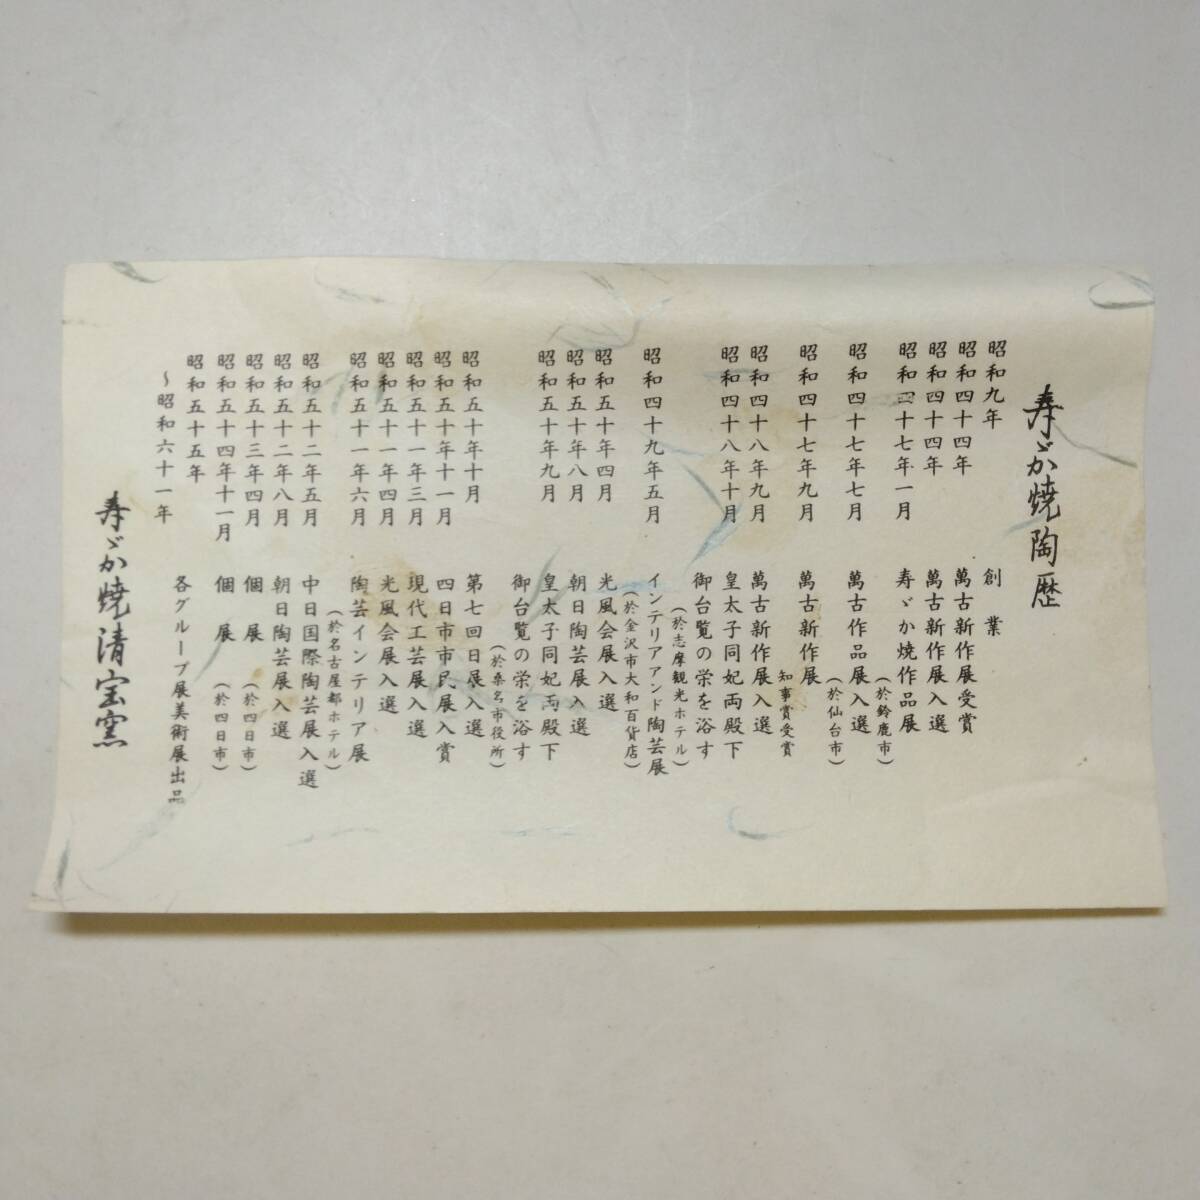 寿ゞか焼陶歴
昭和九年 創業
昭和四十四年 萬古新作展受賞
昭和四十四年 萬古新作展入選
昭和四十七年一月 寿ゞか焼作品展
(於鈴鹿市)
昭和四十七年七月 萬古作品展入選
(於仙台市)
昭和四十七年九月 萬古新作展
知事賞受賞
昭和四十八年九月 萬古新作展入選
昭和四十八年十月 皇太子同妃両殿下
御台覧の栄を浴す
(於志摩観光ホテル)
昭和四十九年五月 インテリアアンド陶芸展
(於金沢市大和百貨店)
昭和五十年四月 光風会展入選
昭和五十年八月 朝日陶芸展入選
昭和五十年九月 皇太子同妃両殿下
御台覧の栄を浴す
(於桑名市役所)
昭和五十年十月 第七回日展入選
昭和五十年十一月 四日市市民展入賞
昭和五十一年三月 現代工芸展入選
昭和五十一年四月 光風会展入選
昭和五十一年六月 陶芸インテリア展
(於名古屋都ホテル)
昭和五十二年五月 中日国際陶芸展入選
昭和五十二年八月 朝日陶芸展入選
昭和五十三年四月 個展 (於四日市)
昭和五十四年十一月 個展 (於四日市)
昭和五十五年
～昭和六十一年 各グループ展美術展出品
寿ゞか焼清宝窯